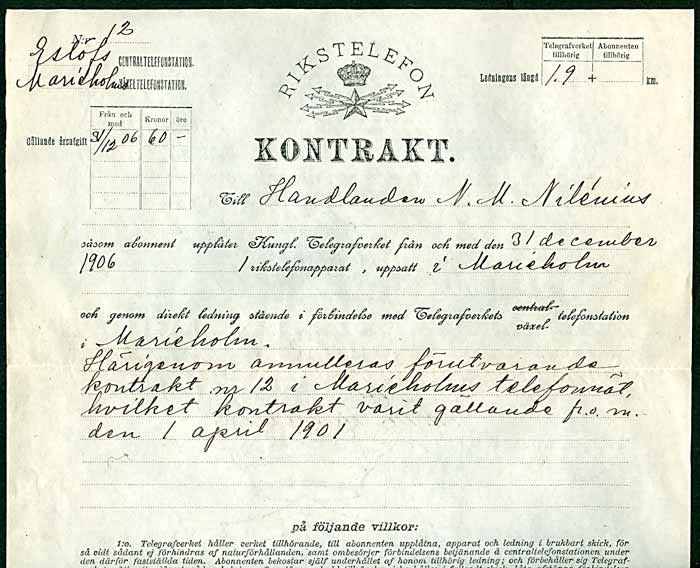 Nr 12
Eslöfs CENTRALTELEFONSTATION.
Marieholms VÄXELTELEFONSTATION.
RIKSTELEFON
Telegrafverket tillhörig Abonnenten tillhörig
Ledningens längd 1.9 + km.
Från och med Kronor öre
Gällande årsafgift 31/12 06 60 -
KONTRAKT.
Till Handlanden N. M. Nilénius
såsom abonnent upplåter Kungl. Telegrafverket från och med den 31 december
1906 1 rikstelefonapparat, uppsatt i Marieholm
och genom direkt ledning stående i förbindelse med Telegrafverkets central- växel- telefonstation
i Marieholm.
Härigenom annulleras förutvarande
kontrakt nr 12 i Marieholms telefonnät,
hvilket kontrakt varit gällande fr.o.m.
den 1 april 1901
på följande villkor:
1:o. Telegrafverket håller verket tillhörande, till abonnenten upplåtna, apparat och ledning i brukbart skick, för
så vidt sådant ej förhindras af naturförhållanden, samt ombesörjer förbindelsens betjänande å centraltelefonstationen under
den därför fastställda tiden. Abonnenten bekostar själf underhållet af honom tillhörig ledning; och förbehåller sig Telegraf-